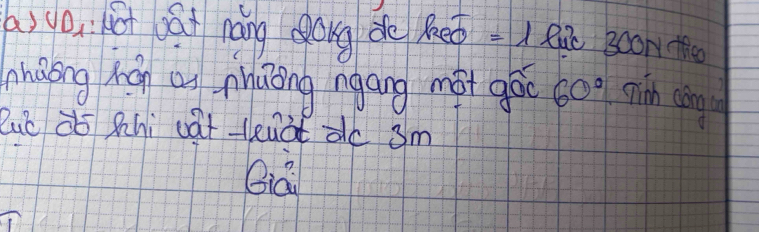 a) VD₁: Một vật nặng 20kg đc kéo = 1 lực 300N theo
phương hợp vs phương ngang một góc 60°. Tính công của
lực đó khi vật trượt đc 3m
Giải